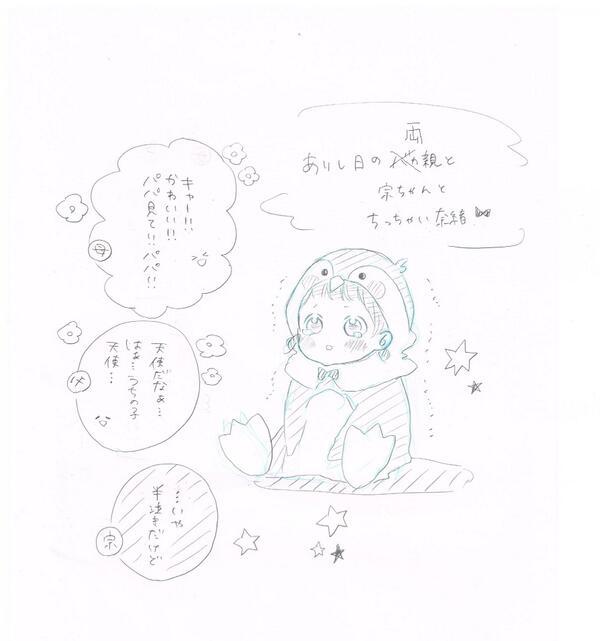 両
ありし日の親と
宗ちゃんと
ちっちゃい奈緒!
キャー!!
かわいい!!
パパ見て!!パパ!!
母
天使だなぁ…
はぁ…うちの子
天使…
父
…いや
半泣きだけど
宗